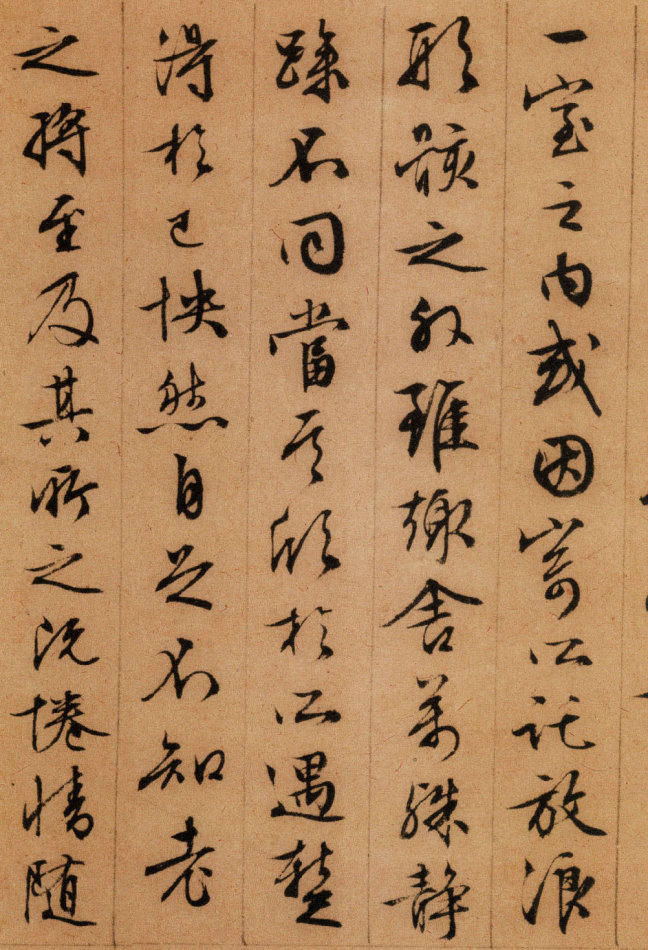 一室之内或因寄所託放浪
形骸之外雖趣舍萬殊静
躁不同當其欣於所遇蹔
得於己怏然自足不知老
之将至及其所之既惓情随